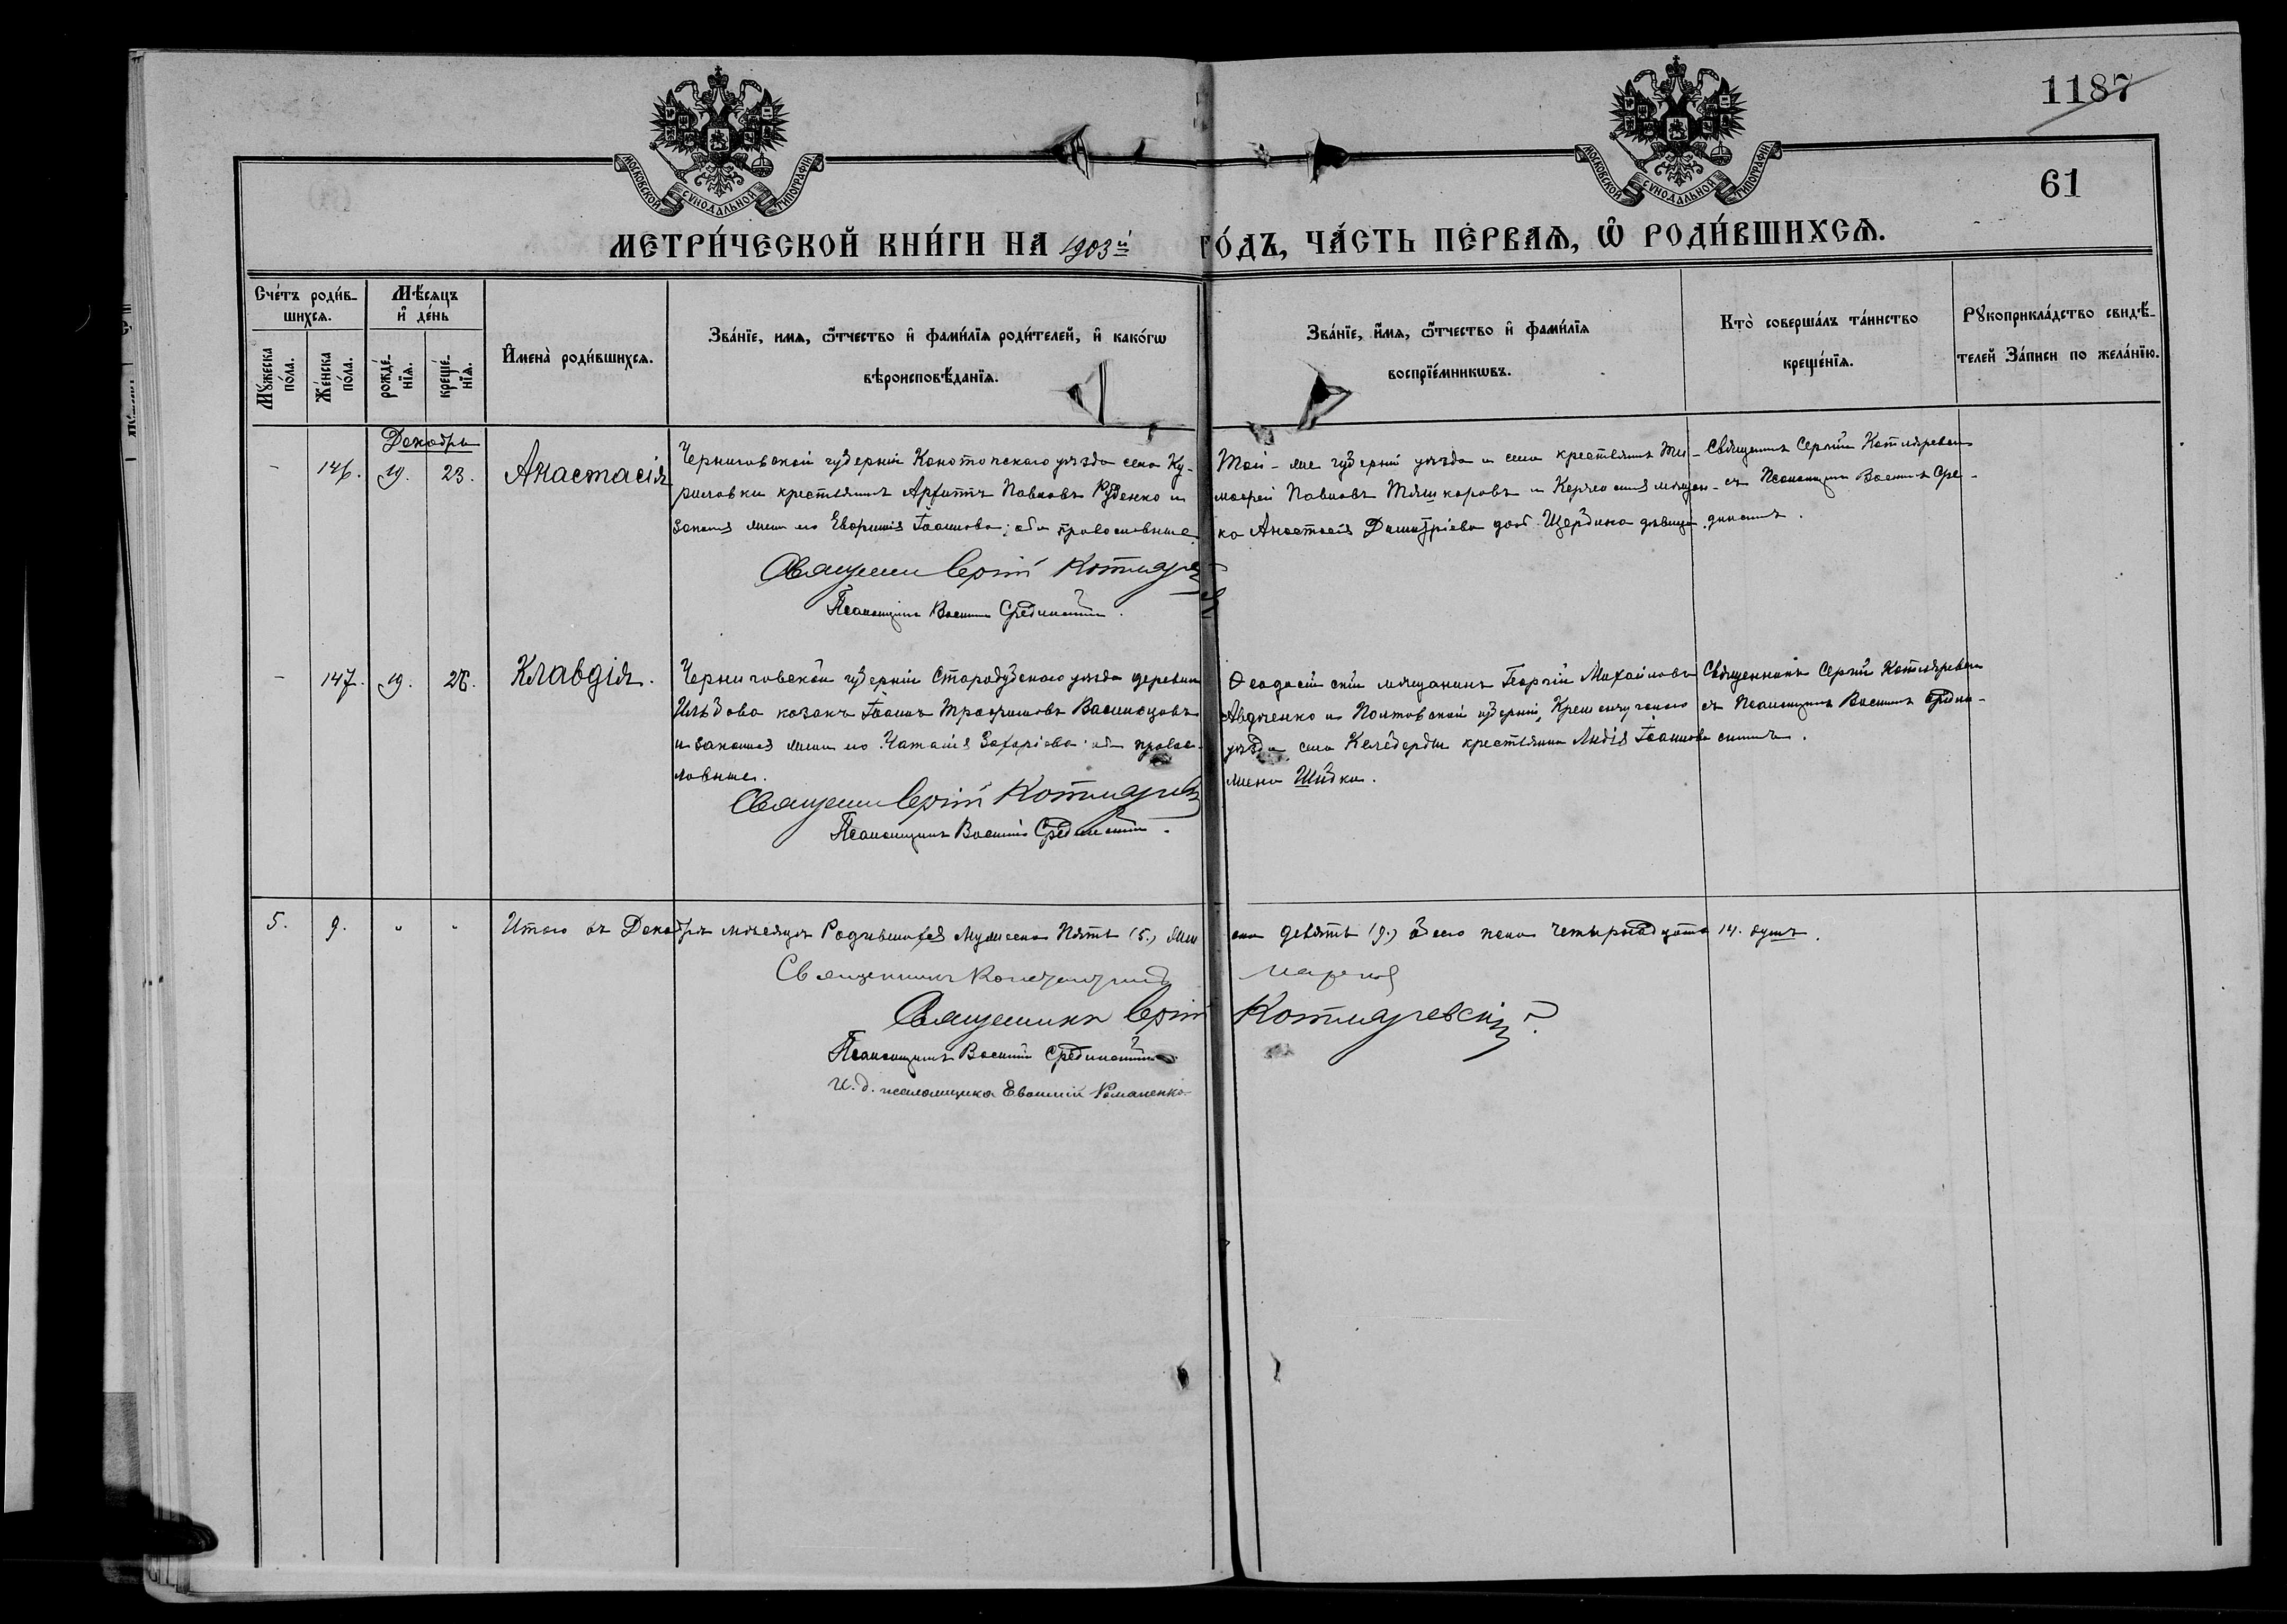 1187
61
МОСКОВСКОЙ СУНОДАЛЬНОЙ ТИПОГРАФІИ
МОСКОВСКОЙ СУНОДАЛЬНОЙ ТИПОГРАФІИ
МЕТРИ́ЧЕСКОЙ КНИ́ГИ НА 1903й ГО́ДЪ, ЧА́СТЬ ПЕ́РВАѦ, Ѡ РОДИ́ВШИХСѦ.
Сче́тъ роди́в-
шихсѧ.
Мꙋ́жеска по́ла.
Же́нска по́ла.
Мѣ́сѧцъ и де́нь
рожде́-
нїѧ.
креще́-
нїѧ.
Имена̀ роди́вшихсѧ.
Зва́нїе, имѧ, ѻтчество и фами́лїѧ роди́телей, и како́гѡ
вѣроисповѣ́данїѧ.
Зва́нїе, имѧ, ѻтчество и фами́лїѧ
воспрїе́мникѡвъ.
Кто̀ соверша́лъ та́инство
креще́нїѧ.
Рꙋкоприкла́дство свидѣ́-
телей За́писи по жела́нїю.
Декабрь
- 146. 19. 23. Анастасія
Черниговской губерніи Конотопскаго уѣзда села Ку-
риловки крестьянинъ Архиппъ Павловъ Руденко и
законная жена его Евфимія Іоаннова; оба православные.
Священникъ Сергій Котляревскій
Псаломщикъ Василій Срединскій.
Той-же губерніи уѣзда и села крестьянинъ Ти-
мофей Павловъ и Керченская мѣщан-
ка Анастасія Димитріева дочь Щербина дѣвица.
Священникъ Сергій Котляревскій
съ Псаломщикомъ Василіемъ Сре-
динскимъ.
- 147. 19. 26. Клавдія.
Черниговской губерніи Стародубскаго уѣзда деревни
казакъ Іоаннъ Трофимовъ Василцовъ
и законная жена его Захаріева оба правос-
лавные.
Священникъ Сергій Котляревскій
Псаломщикъ Василій Срединскій.
Ѳеодосійскій мѣщанинъ Георгій Михайловъ
Авдѣенко и Полтавской губерніи, Кременчугскаго
уѣзда села Келеберды крестьянина Лидія Іоаннова
жена Шидка.
Священникъ Сергій Котляревскій
съ Псаломщикомъ Василіемъ Средин-
скимъ.
5. 9. " " Итого въ Декабрѣ мѣсяцѣ Родившихся Мужеска Пять (5.) Женска девять (9.) обоего пола четырнадцать 14. душъ.
Священникъ
Священникъ Сергій Котляревскій
Псаломщикъ Василій Срединскій
И. д. псаломщика Евфимій Романенко